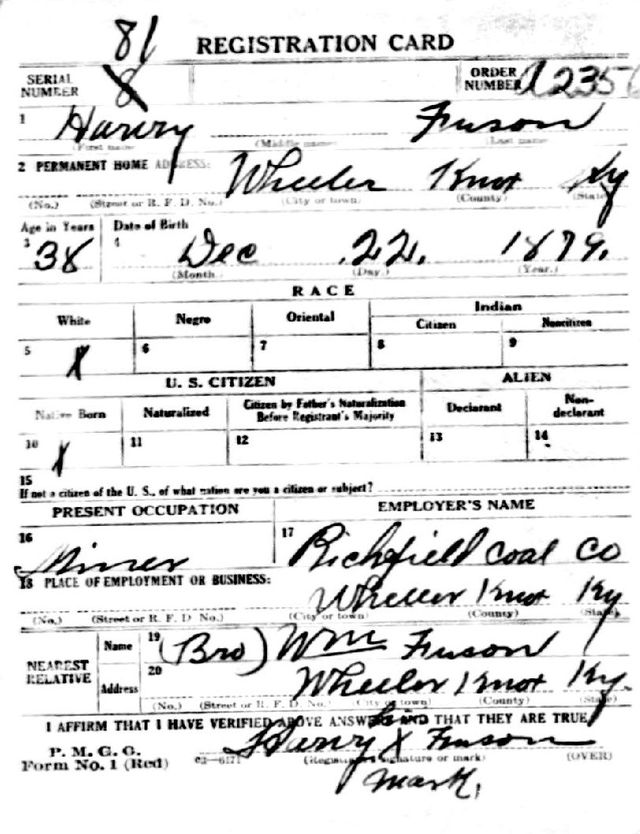 81
REGISTRATION CARD
SERIAL NUMBER 8 ORDER NUMBER A2356
1 Harvy Fuson
(First name) (Middle name) (Last name)
2 PERMANENT HOME ADDRESS: Wheeler Knox Ky
(No.) (Street or R. F. D. No.) (City or town) (County) (State)
Age in Years Date of Birth
3 38 4 Dec 22. 1879.
(Month) (Day) (Year)
RACE
White Negro Oriental Indian
Citizen Noncitizen
5 X 6 7 8 9
U. S. CITIZEN ALIEN
Native Born Naturalized Citizen by Father's Naturalization Before Registrant's Majority Declarant Non-declarant
10 X 11 12 13 14
15
If not a citizen of the U. S., of what nation are you a citizen or subject?
PRESENT OCCUPATION EMPLOYER'S NAME
16 Miner 17 Richfield Coal Co
18 PLACE OF EMPLOYMENT OR BUSINESS:
Wheeler Knox Ky
(No.) (Street or R. F. D. No.) (City or town) (County) (State)
NEAREST RELATIVE Name 19 (Bro) Wm Fuson
Address 20 Wheeler Knox Ky.
(No.) (Street or R. F. D. No.) (City or town) (County) (State)
I AFFIRM THAT I HAVE VERIFIED ABOVE ANSWERS AND THAT THEY ARE TRUE
P. M. G. O. Harvy X Fuson
Form No. 1 (Red) 03—6171 (Registrant's signature or mark) (OVER)
mark,